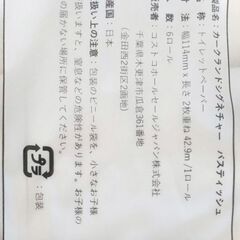 品名:カークランドシグネチャー バスティッシュ
称:トイレットペーパー
法:幅114mm x 長さ 2枚重ね 42.9m /1ロール
数:6ロール
売者:コストコホールセールジャパン株式会社
千葉県木更津市瓜倉361番地
(金田西2街区2画地)
産国:日本
扱い上の注意:包装のビニール袋を、小さなお子様
ますと、窒息などの危険性があります。お子様の
の届かない場所に保管してください。
プラ :包装